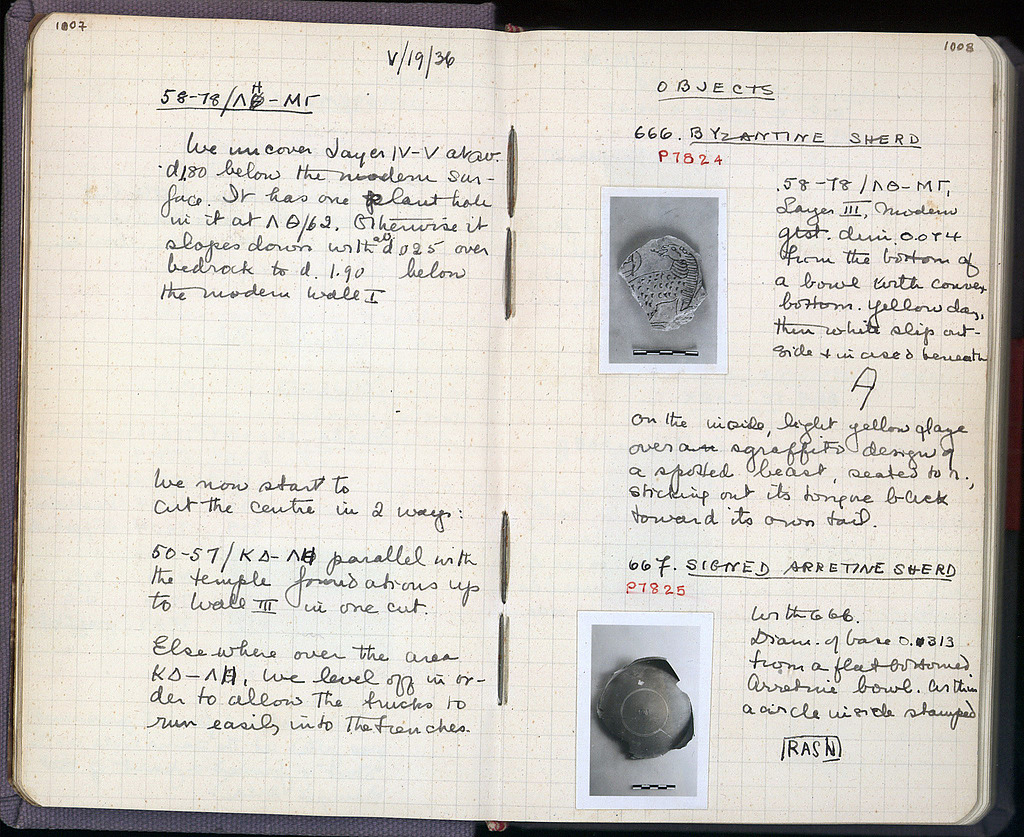 1007
V/19/36
58-78/ΛH-MΓ
We uncover Layer IV-V at av.
d. 1.80 below the modern sur-
face. It has one plant hole
in it at ΛΘ/62. Otherwise it
slopes down with av d 0.25 over
bedrock to d. 1.90 below
the modern wall I
We now start to
cut the centre in 2 ways:
50-57/KΔ-ΛH parallel with
the temple foundations up
to Wall III in one cut.
Elsewhere over the area
KΔ-ΛH, we level off in or-
der to allow the trucks to
run easily into the trenches.
1008
OBJECTS
666. BYZANTINE SHERD
P7824
58-78/ΛΘ-MΓ,
Layer III, modern
dist. dim. 0.074
from the bottom of
a bowl with convex
bottom. Yellow clay,
thin white slip out-
side & incised beneath
A
on the inside, light yellow glaze
over a sgraffito design of
a spotted beast, seated to r.,
sticking out its tongue back
toward its own tail.
667. SIGNED ARRETINE SHERD
P7825
With 666.
Diam. of base 0.0313
from a flat bottomed
Arretine bowl. Within
a circle inside stamped
RASN